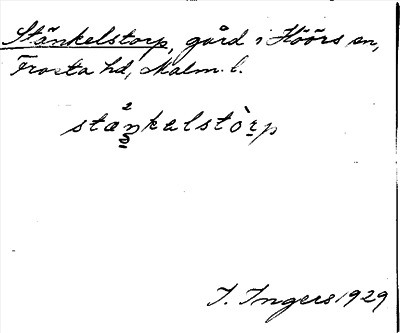 Stänkelstorp, gård i Höörs sn,
Frosta hd, Malm. l.
stæ²nkəlstòrp
I. Ingers 1929